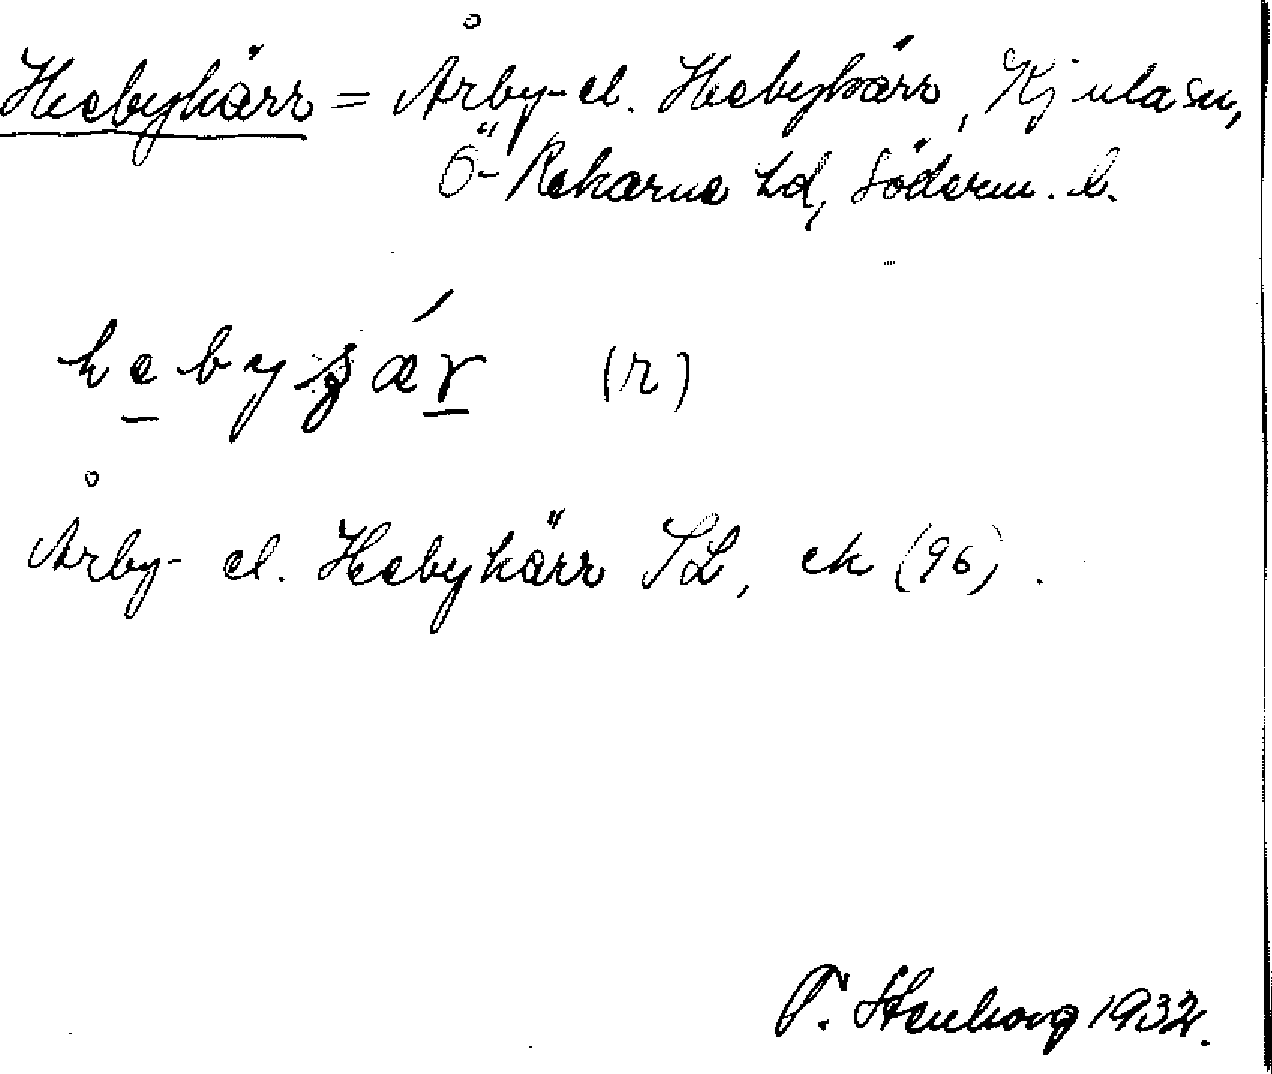 Hebykärr = Årby- el. Hebykärr, Kjula sn,
Ö- Rekarne hd, Söderm. l.
hebyʒǽr (r)
Årby- el. Hebykärr SL, ek (96).
T. Stenborg 1932.